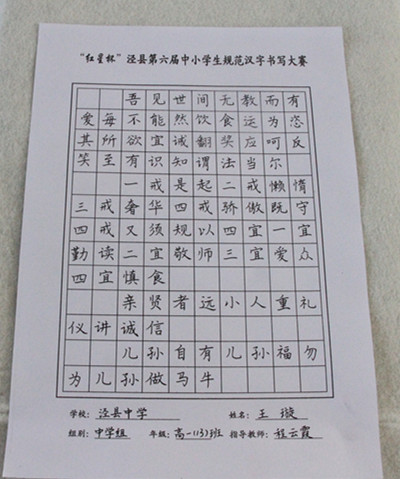 “红星杯”泾县第六届中小学生规范汉字书写大赛
吾见世间无教而有
爱每不能然饮食运为恣
其所欲宜诫翻奖应呵反
笑至有识知谓法当尔
一戒是起二戒懒惰
三戒奢华四戒骄傲既守
四戒又须规以四宜一宜
勤读二宜敬师三宜爱众
四宜慎食
亲贤者远小人重礼
仪讲诚信
儿孙自有儿孙福勿
为儿孙做马牛
学校：泾县中学 姓名：王璇
组别：中学组 年级：高一(13)班 指导教师：程云霞